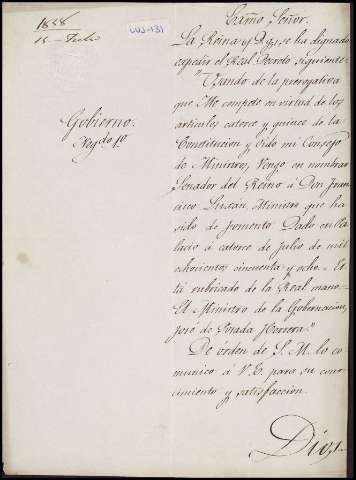 1858
15 - Julio
Gobierno.
Neg.do 1º
Excmo Señor.
La Reina (q. D. g.) se ha dignado
expedir el Real Decreto siguiente-
"Usando de la prerogativa
que Me compete en virtud de los
artículos catorce y quince de la
Constitucion y oido mi Consejo
de Ministros, Vengo en nombrar
Senador del Reino á Don Fran
cisco Luxán, Ministro que ha
sido de Fomento. Dado en Pa
lacio á catorce de Julio de mil
ochocientos cincuenta y ocho- Es
tá rubricado de la Real mano-
El Ministro de la Gobernacion,
José de Posada Herrera."
De órden de S. M. lo co
munico á V. E. para su cono
cimiento y satisfaccion.
Dios